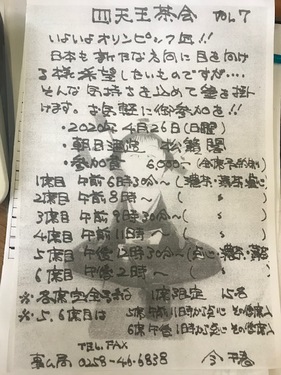 四天王茶会 Vol.7
いよいよオリンピック年!!
日本も新たな方向に目を向け
る様希望したいものですが....
そんな気持ちを込めて釜を掛
けます。お気軽に御参加を!!
・2020年4月26日(日曜)
・朝日酒造 松籟閣
・参加費 6,000- (全席予約制)
1席目 午前6時30分〜(濃茶・薄茶・点心
2席目 午前8時〜 ( 〃 )
3席目 午前9時30分〜( 〃 )
4席目 午前11時〜 ( 〃 )
5席目 午後12時30分〜(点心・濃茶・薄茶
6席目 午後2時〜 ( 〃 )
※各席完全予約 1席限定 15名
※5、6席目は 5席 午前11時から点心 その後席入
6席 午後1時から点心 その後席入
TEL.FAX
0258-46-6838